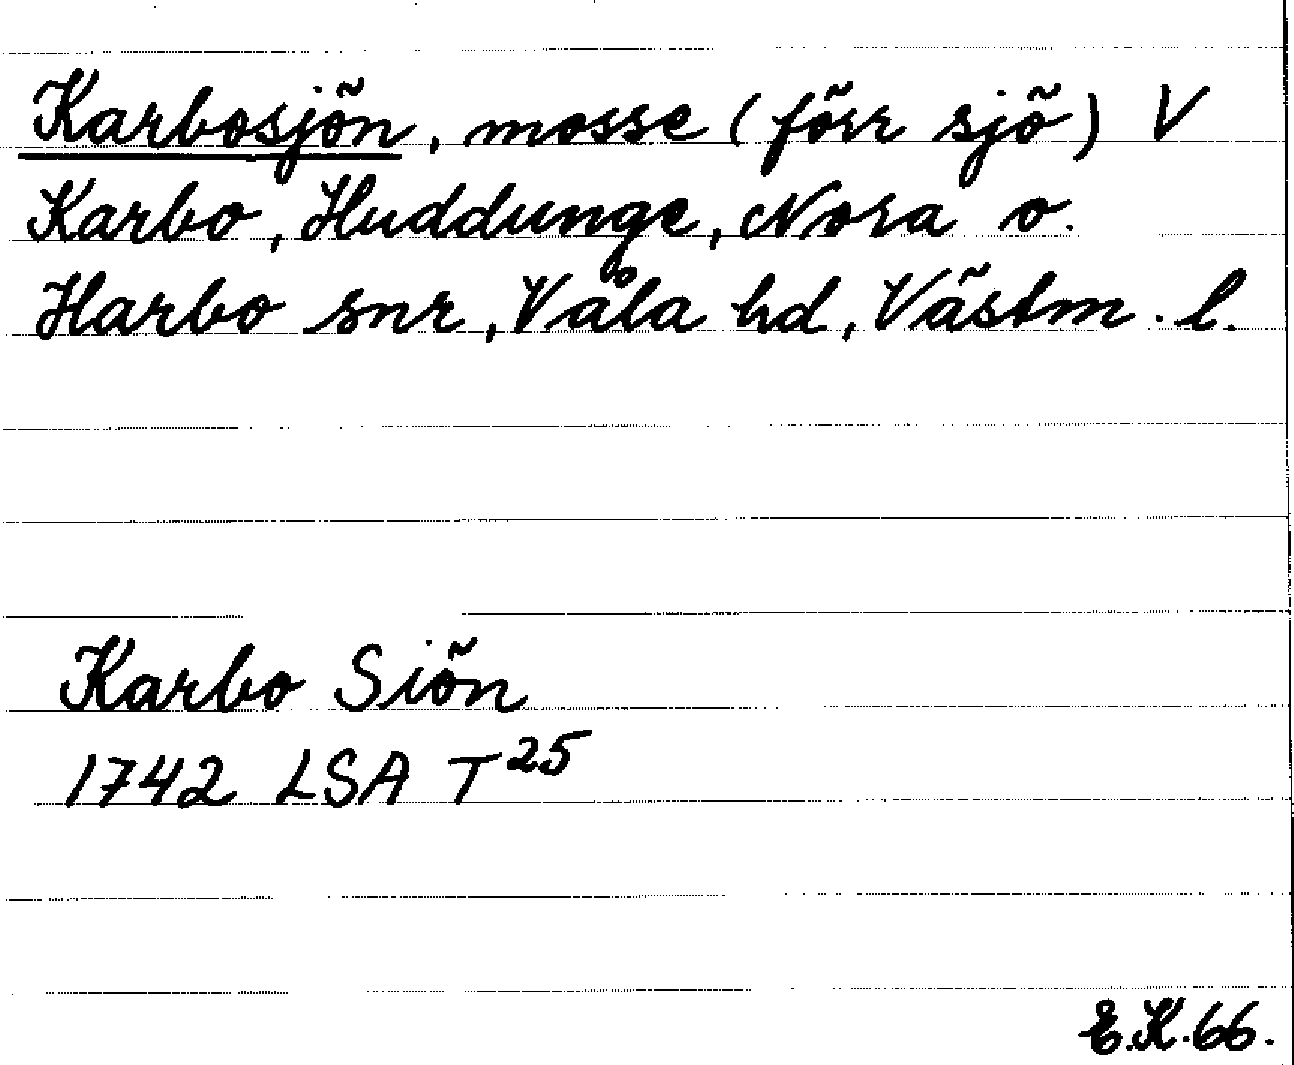 Karbosjön, mosse (förr sjö) V
Karbo, Huddunge, Nora o.
Harbo snr, Våla hd, Västm. l.
Karbo Siön
1742 LSA T 25
E.K. 66.